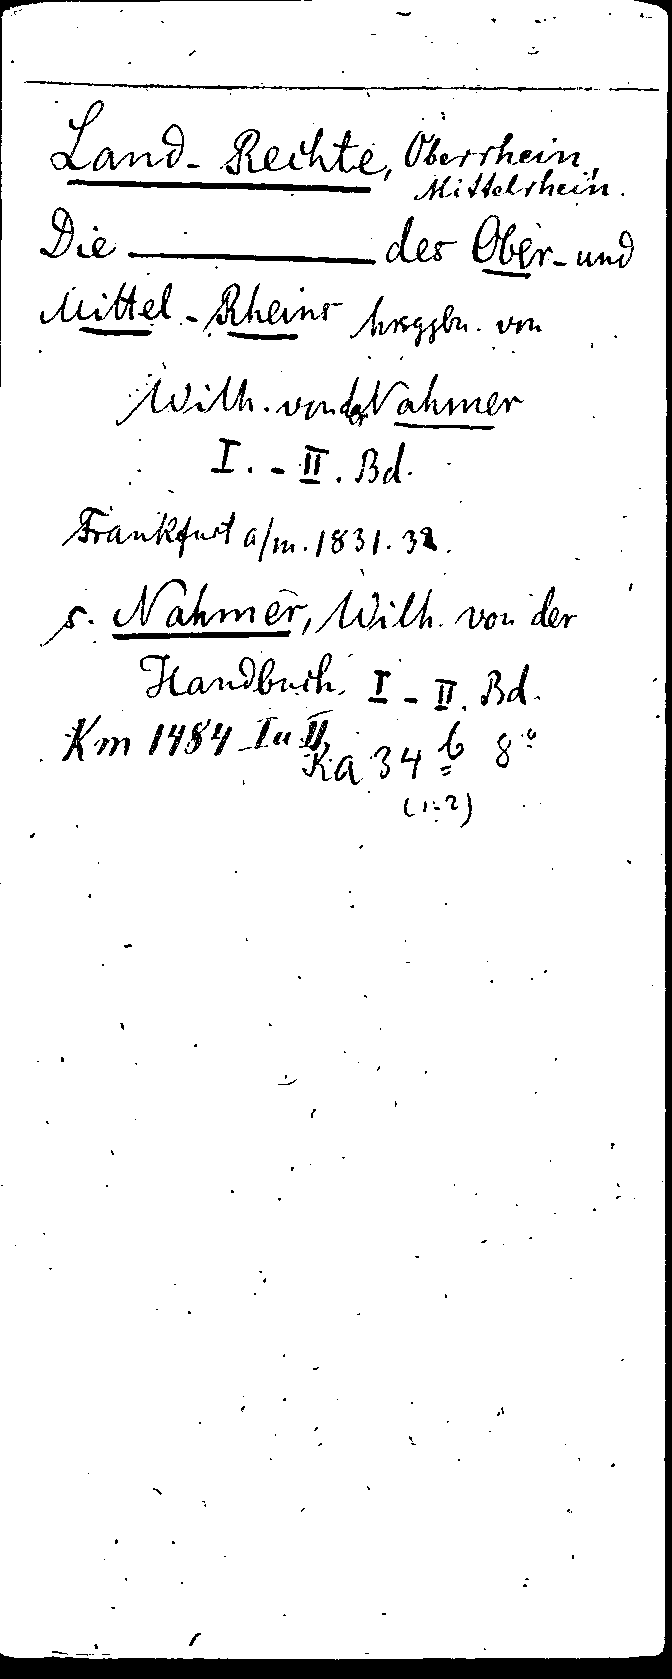 Land-Rechte, Oberrhein,
Mittelrhein.
Die ________ des Ober- und
Mittel-Rheins hrsggbn. von
Wilh. von der Nahmer
I. - II. Bd.
Frankfurt a/m. 1831. 32.
s. Nahmer, Wilh. von der
Handbuch. I - II. Bd.
Km 1484 I u II,
Ka 34 b 8°
(1-2)